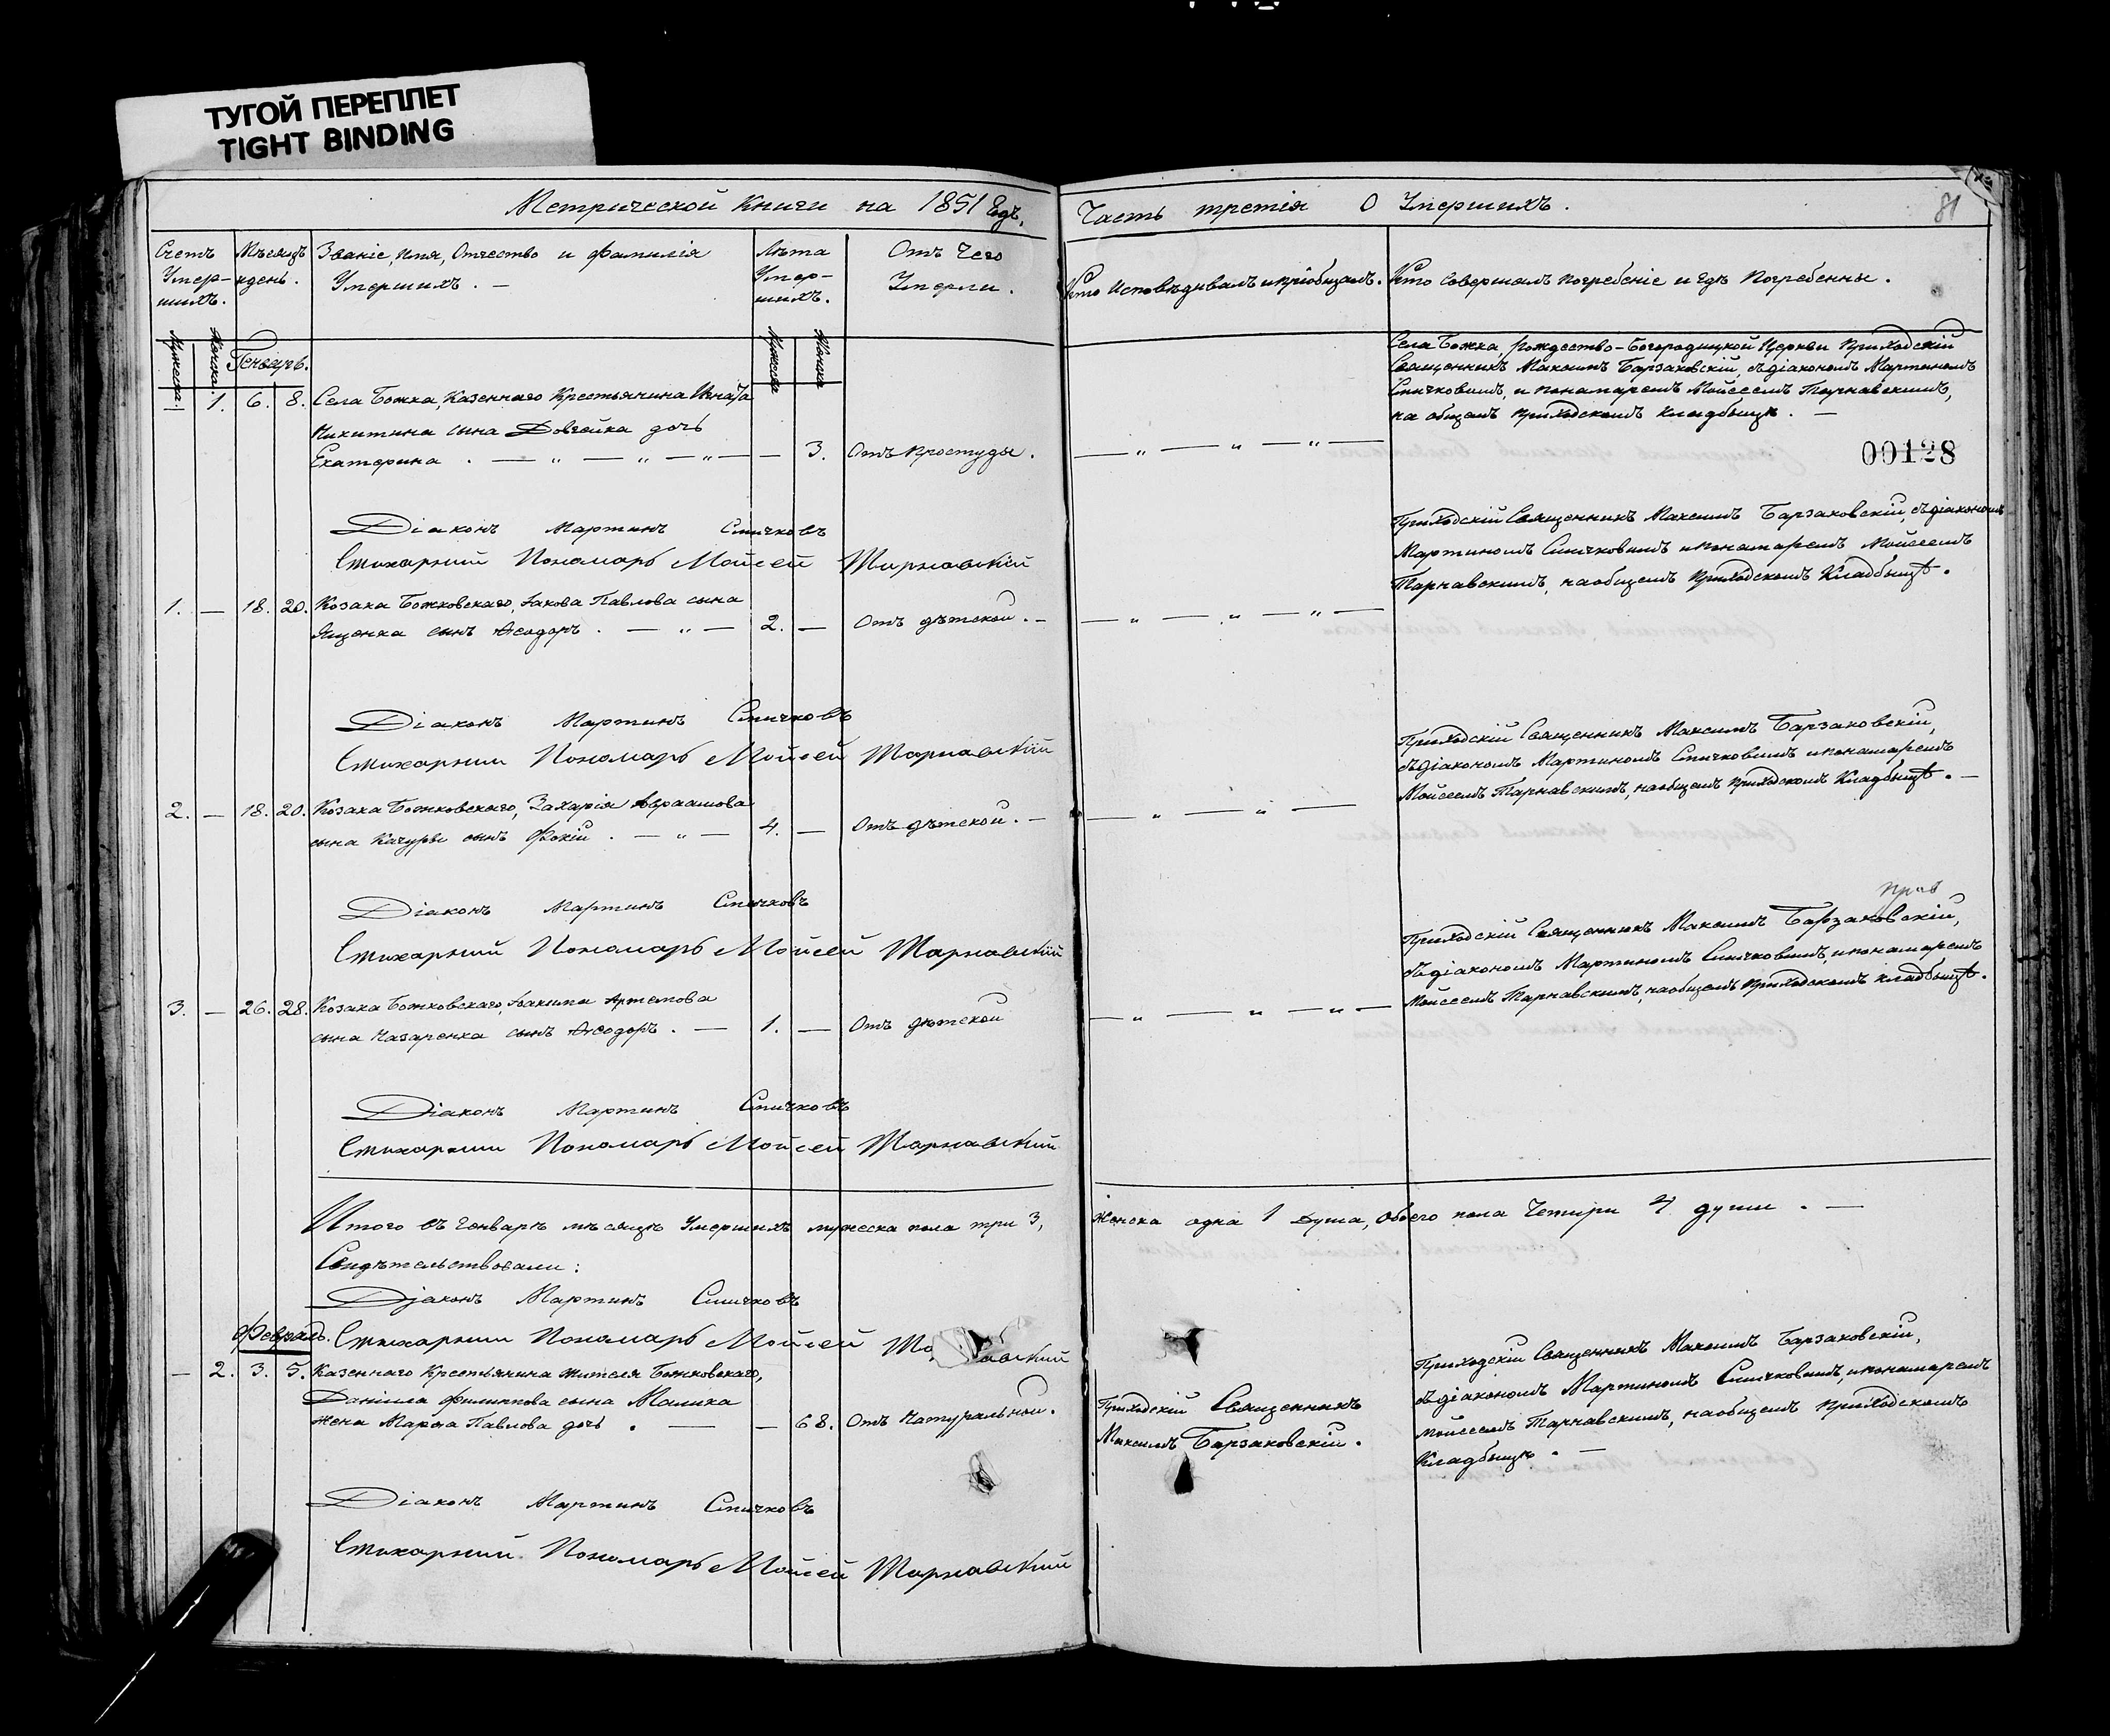 ТУГОЙ ПЕРЕПЛЕТ
TIGHT BINDING
Метрической Книги на 1851 Годъ,
Часть третія О Умершихъ.
81
Счетъ Умер-
шихъ.
Мужеска.
Женска.
Мѣсяцъ
и день.
Званіе, Имя, Отчество и фамилія
Умершихъ. —
Лѣта
Умер-
шихъ.
Мужеска
Женска
Отъ Чего
Умерли.
Кто Исповѣдывалъ и пріобщалъ.
Кто Совершалъ погребеніе и Гдѣ Погребенны.
Генварь.
— 1. 6. 8. Села Божка, Казеннаго Крестьянина Игната
Никитина сына Довгейка дочь
Екатерина . — „ — „ — „ — — 3. Отъ простуды.
— „ — „ — „ —
Села Божка, Рождество-Богородицкой Церкви Приходскій
Священникъ Максимъ Барзаковскій, съ діакономъ Мартиномъ
Спичковымъ, и понамаремъ Мойсеемъ Тарнавскимъ,
на общемъ приходскомъ кладбищѣ. —
00128
Діаконъ Мартинъ Спичковъ
Стихарний Пономарь Мойсей Тарнавскій
1. — 18. 20. Козака Божковскаго, Іакова Павлова сына
Яценка сынъ Ѳеодоръ. — „ — 2. — Отъ дѣтской. —
— „ — „ — „ —
Приходскій Священникъ Максимъ Барзаковскій, съ діакономъ
Мартиномъ Спичковымъ и понамаремъ Мойсеемъ
Тарнавскимъ, на общемъ приходскомъ Кладбищѣ.
Діаконъ Мартинъ Спичковъ
Стихарний Пономарь Мойсей Тарнавскій
2. — 18. 20. Козака Божковскаго, Захарія Авраамова
сына Качуры сынъ Фокій . — „ — 4. — Отъ дѣтской. —
— „ — „ —
Приходскій Священникъ Максимъ Барзаковскій,
съ діакономъ Мартиномъ Спичковымъ и понамаремъ
Мойсеемъ Тарнавскимъ, на общемъ приходскомъ Кладбищѣ. —
Діаконъ Мартинъ Спичковъ
Стихарний Пономарь Мойсей Тарнавскій
3. — 26. 28. Козака Божковскаго, Іоакима Артемова
сына Назаренка сынъ Ѳеодоръ. — 1. — Отъ дѣтской
— „ — „ — „ —
Приходскій Священникъ Максимъ Барзаковскій,
съ діакономъ Мартиномъ Спичковымъ, и понамаремъ
Мойсеемъ Тарнавскимъ, на общемъ приходскомъ кладбищѣ.
Діаконъ Мартинъ Спичковъ
Стихарний Пономарь Мойсей Тарнавскій
Итого въ Генварѣ мѣсяцѣ Умершихъ мужеска пола три 3, женска одна 1 душа, Обоего пола Четыри 4 души. —
Свидѣтельствовали:
Діаконъ Мартинъ Спичковъ
Стихарний Пономарь Мойсей
Февраль.
— 2. 3. 5. Казеннаго Крестьянина жителя Божковскаго,
Даніила Филиппова сына Малика
жена Марѳа Павлова дочь . — — 68. Отъ Натуральной.
Приходскій Священникъ
Максимъ Барзаковскій.
Приходскій Священникъ Максимъ Барзаковскій,
съ діакономъ Мартиномъ Спичковымъ, и понамаремъ
Мойсеемъ Тарнавскимъ, на общемъ приходскомъ
Кладбищѣ. —
Діаконъ Мартинъ Спичковъ
Стихарний Пономарь Мойсей Тарнавский